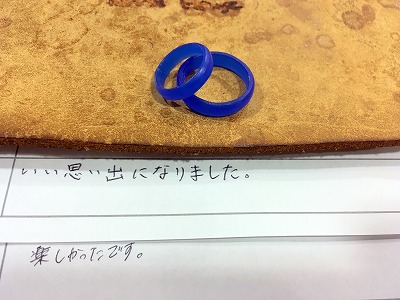 いい思い出になりました。
楽しかったです。